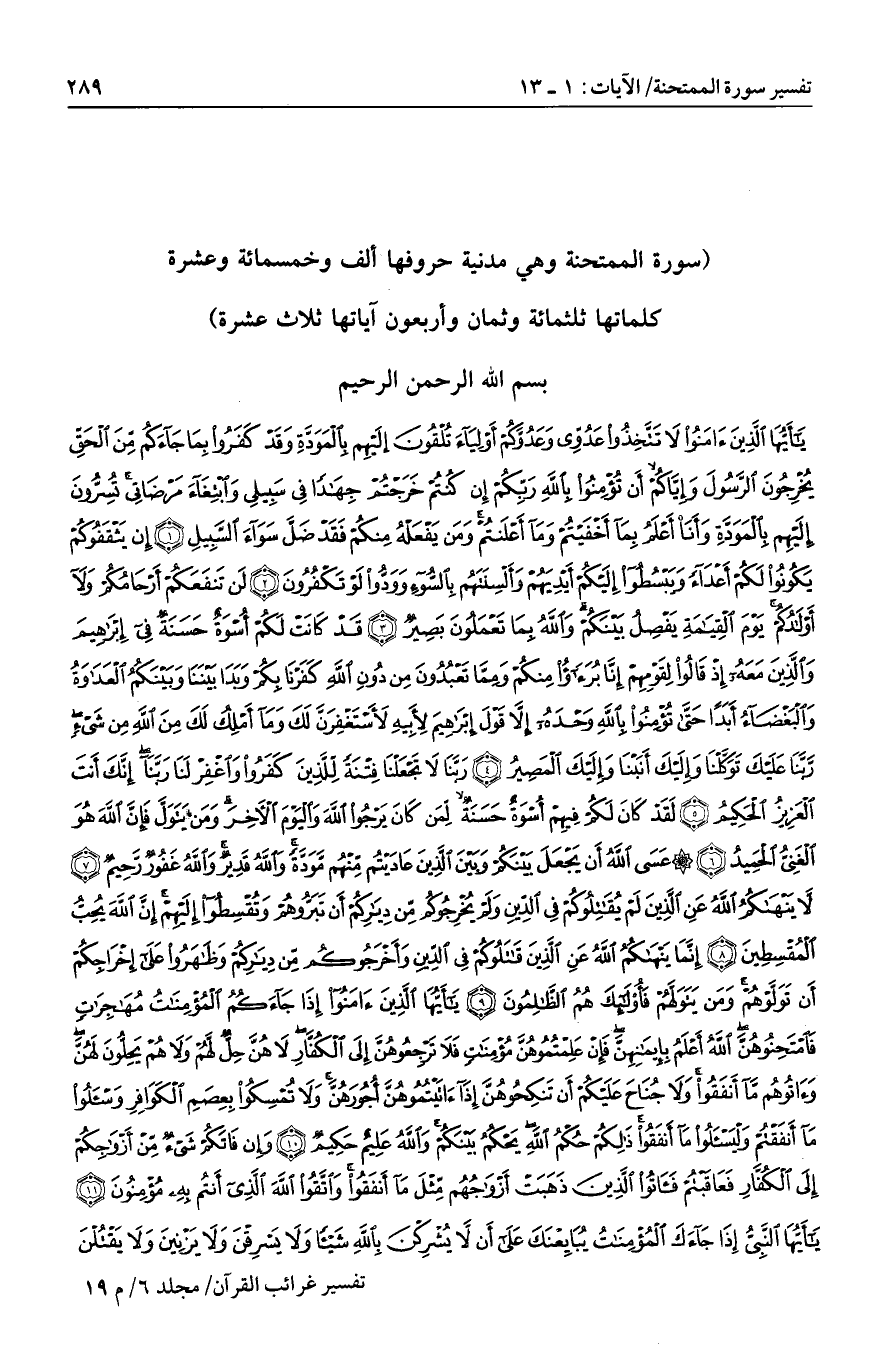 تفسير سورة الممتحنة/ الآيات: ١ ـ ١٣ ٢٨٩
(سورة الممتحنة وهي مدنية حروفها ألف وخمسمائة وعشرة
كلماتها ثلثمائة وثمان وأربعون آياتها ثلاث عشرة)
بسم الله الرحمن الرحيم
يَٰٓأَيُّهَا ٱلَّذِينَ ءَامَنُوا۟ لَا تَتَّخِذُوا۟ عَدُوِّى وَعَدُوَّكُمْ أَوْلِيَآءَ تُلْقُونَ إِلَيْهِم بِٱلْمَوَدَّةِ وَقَدْ كَفَرُوا۟ بِمَا جَآءَكُم مِّنَ ٱلْحَقِّ
يُخْرِجُونَ ٱلرَّسُولَ وَإِيَّاكُمْ ۙ أَن تُؤْمِنُوا۟ بِٱللَّهِ رَبِّكُمْ إِن كُنتُمْ خَرَجْتُمْ جِهَٰدًا فِى سَبِيلِى وَٱبْتِغَآءَ مَرْضَاتِى ۚ تُسِرُّونَ
إِلَيْهِم بِٱلْمَوَدَّةِ وَأَنَا۠ أَعْلَمُ بِمَآ أَخْفَيْتُمْ وَمَآ أَعْلَنتُمْ ۚ وَمَن يَفْعَلْهُ مِنكُمْ فَقَدْ ضَلَّ سَوَآءَ ٱلسَّبِيلِ ۝١ إِن يَثْقَفُوكُمْ
يَكُونُوا۟ لَكُمْ أَعْدَآءً وَيَبْسُطُوٓا۟ إِلَيْكُمْ أَيْدِيَهُمْ وَأَلْسِنَتَهُم بِٱلسُّوٓءِ وَوَدُّوا۟ لَوْ تَكْفُرُونَ ۝٢ لَن تَنفَعَكُمْ أَرْحَامُكُمْ وَلَآ
أَوْلَٰدُكُمْ ۚ يَوْمَ ٱلْقِيَٰمَةِ يَفْصِلُ بَيْنَكُمْ ۚ وَٱللَّهُ بِمَا تَعْمَلُونَ بَصِيرٌ ۝٣ قَدْ كَانَتْ لَكُمْ أُسْوَةٌ حَسَنَةٌ فِىٓ إِبْرَٰهِيمَ
وَٱلَّذِينَ مَعَهُۥٓ إِذْ قَالُوا۟ لِقَوْمِهِمْ إِنَّا بُرَءَٰٓؤُا۟ مِنكُمْ وَمِمَّا تَعْبُدُونَ مِن دُونِ ٱللَّهِ كَفَرْنَا بِكُمْ وَبَدَا بَيْنَنَا وَبَيْنَكُمُ ٱلْعَدَٰوَةُ
وَٱلْبَغْضَآءُ أَبَدًا حَتَّىٰ تُؤْمِنُوا۟ بِٱللَّهِ وَحْدَهُۥٓ إِلَّا قَوْلَ إِبْرَٰهِيمَ لِأَبِيهِ لَأَسْتَغْفِرَنَّ لَكَ وَمَآ أَمْلِكُ لَكَ مِنَ ٱللَّهِ مِن شَىْءٍ ۖ
رَّبَّنَا عَلَيْكَ تَوَكَّلْنَا وَإِلَيْكَ أَنَبْنَا وَإِلَيْكَ ٱلْمَصِيرُ ۝٤ رَبَّنَا لَا تَجْعَلْنَا فِتْنَةً لِّلَّذِينَ كَفَرُوا۟ وَٱغْفِرْ لَنَا رَبَّنَآ ۖ إِنَّكَ أَنتَ
ٱلْعَزِيزُ ٱلْحَكِيمُ ۝٥ لَقَدْ كَانَ لَكُمْ فِيهِمْ أُسْوَةٌ حَسَنَةٌ ۙ لِّمَن كَانَ يَرْجُوا۟ ٱللَّهَ وَٱلْيَوْمَ ٱلْءَاخِرَ ۚ وَمَن يَتَوَلَّ فَإِنَّ ٱللَّهَ هُوَ
ٱلْغَنِىُّ ٱلْحَمِيدُ ۝٦ ۞ عَسَى ٱللَّهُ أَن يَجْعَلَ بَيْنَكُمْ وَبَيْنَ ٱلَّذِينَ عَادَيْتُم مِّنْهُم مَّوَدَّةً ۚ وَٱللَّهُ قَدِيرٌ ۚ وَٱللَّهُ غَفُورٌ رَّحِيمٌ ۝٧
لَّا يَنْهَىٰكُمُ ٱللَّهُ عَنِ ٱلَّذِينَ لَمْ يُقَٰتِلُوكُمْ فِى ٱلدِّينِ وَلَمْ يُخْرِجُوكُم مِّن دِيَٰرِكُمْ أَن تَبَرُّوهُمْ وَتُقْسِطُوٓا۟ إِلَيْهِمْ ۚ إِنَّ ٱللَّهَ يُحِبُّ
ٱلْمُقْسِطِينَ ۝٨ إِنَّمَا يَنْهَىٰكُمُ ٱللَّهُ عَنِ ٱلَّذِينَ قَٰتَلُوكُمْ فِى ٱلدِّينِ وَأَخْرَجُوكُم مِّن دِيَٰرِكُمْ وَظَٰهَرُوا۟ عَلَىٰٓ إِخْرَاجِكُمْ
أَن تَوَلَّوْهُمْ ۚ وَمَن يَتَوَلَّهُمْ فَأُو۟لَٰٓئِكَ هُمُ ٱلظَّٰلِمُونَ ۝٩ يَٰٓأَيُّهَا ٱلَّذِينَ ءَامَنُوٓا۟ إِذَا جَآءَكُمُ ٱلْمُؤْمِنَٰتُ مُهَٰجِرَٰتٍ
فَٱمْتَحِنُوهُنَّ ۖ ٱللَّهُ أَعْلَمُ بِإِيمَٰنِهِنَّ ۖ فَإِنْ عَلِمْتُمُوهُنَّ مُؤْمِنَٰتٍ فَلَا تَرْجِعُوهُنَّ إِلَى ٱلْكُفَّارِ ۖ لَا هُنَّ حِلٌّ لَّهُمْ وَلَا هُمْ يَحِلُّونَ لَهُنَّ ۖ
وَءَاتُوهُم مَّآ أَنفَقُوا۟ ۚ وَلَا جُنَاحَ عَلَيْكُمْ أَن تَنكِحُوهُنَّ إِذَآ ءَاتَيْتُمُوهُنَّ أُجُورَهُنَّ ۚ وَلَا تُمْسِكُوا۟ بِعِصَمِ ٱلْكَوَافِرِ وَسْـَٔلُوا۟
مَآ أَنفَقْتُمْ وَلْيَسْـَٔلُوا۟ مَآ أَنفَقُوا۟ ۚ ذَٰلِكُمْ حُكْمُ ٱللَّهِ ۖ يَحْكُمُ بَيْنَكُمْ ۚ وَٱللَّهُ عَلِيمٌ حَكِيمٌ ۝١٠ وَإِن فَاتَكُمْ شَىْءٌ مِّنْ أَزْوَٰجِكُمْ
إِلَى ٱلْكُفَّارِ فَعَاقَبْتُمْ فَـَٔاتُوا۟ ٱلَّذِينَ ذَهَبَتْ أَزْوَٰجُهُم مِّثْلَ مَآ أَنفَقُوا۟ ۚ وَٱتَّقُوا۟ ٱللَّهَ ٱلَّذِىٓ أَنتُم بِهِۦ مُؤْمِنُونَ ۝١١
يَٰٓأَيُّهَا ٱلنَّبِىُّ إِذَا جَآءَكَ ٱلْمُؤْمِنَٰتُ يُبَايِعْنَكَ عَلَىٰٓ أَن لَّا يُشْرِكْنَ بِٱللَّهِ شَيْـًٔا وَلَا يَسْرِقْنَ وَلَا يَزْنِينَ وَلَا يَقْتُلْنَ
تفسير غرائب القرآن/ مجلد ٦/ م ١٩